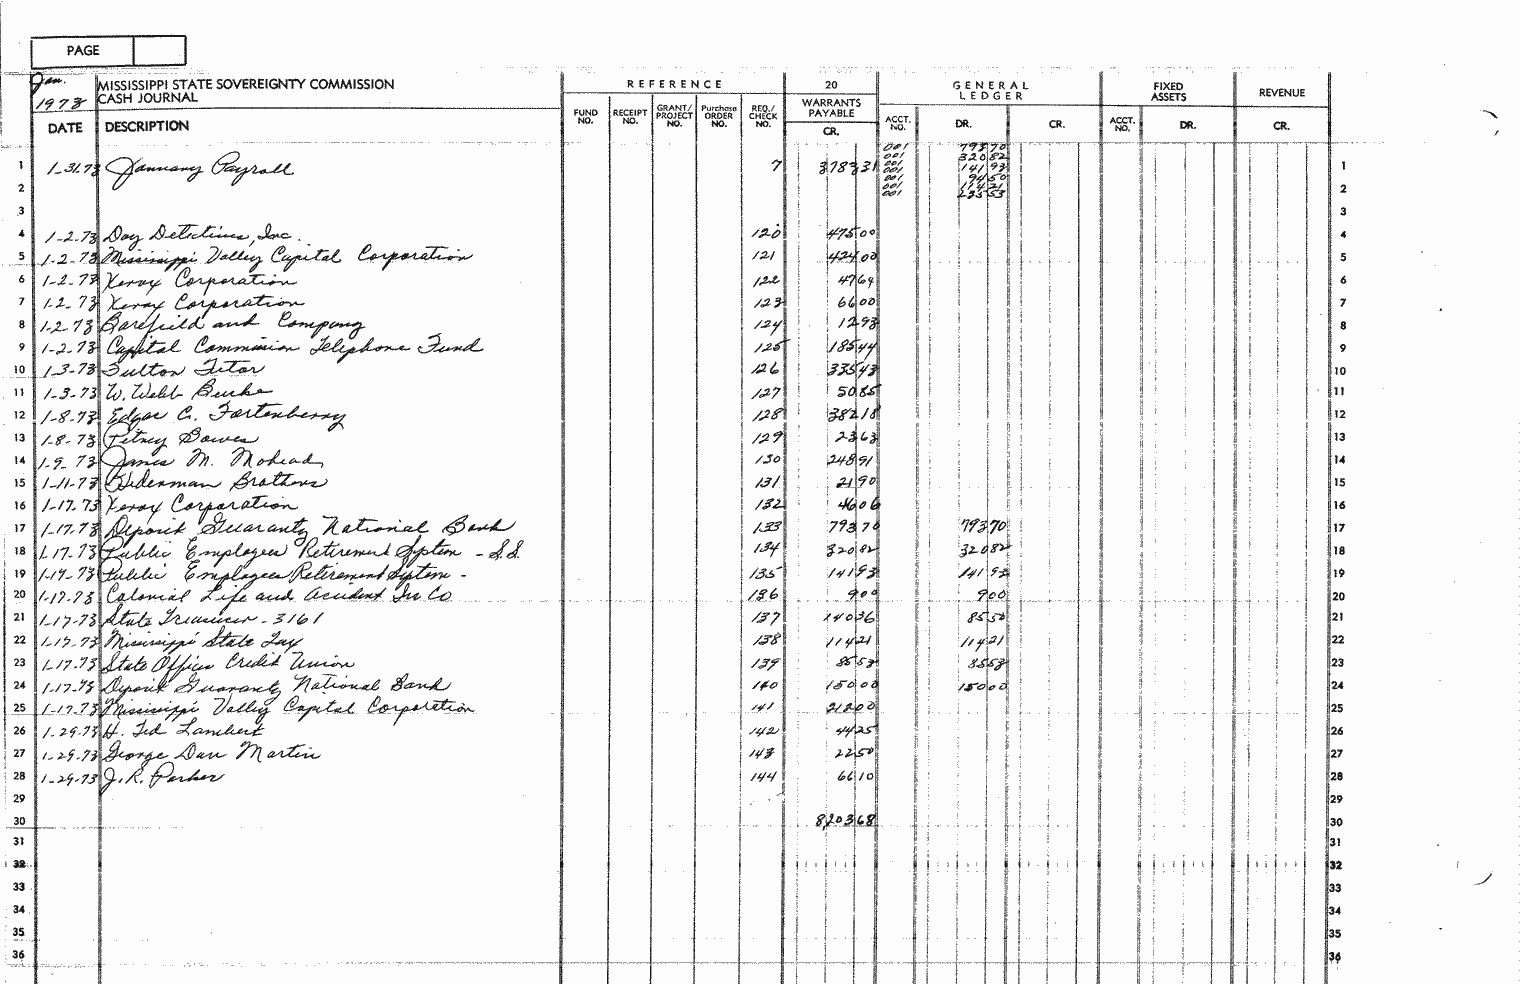 PAGE
Jan. 1973
MISSISSIPPI STATE SOVEREIGNTY COMMISSION
CASH JOURNAL
REFERENCE 20 GENERAL LEDGER FIXED ASSETS REVENUE
DATE DESCRIPTION FUND NO. RECEIPT NO. GRANT/PROJECT NO. Purchase ORDER NO. REQ./CHECK NO. WARRANTS PAYABLE CR. ACCT. NO. DR. CR. ACCT. NO. DR. CR.
001 793 70
001 320 82
1 1-31-73 January Payroll 7 3783 31 001 141 93 1
001 94 50
2 001 114 21 2
001 235 53
3 3
4 1-2-73 Day Detectives, Inc. 120 475 00 4
5 1-2-73 Mississippi Valley Capital Corporation 121 424 00 5
6 1-2-73 Xerox Corporation 122 47 64 6
7 1-2-73 Xerox Corporation 123 66 00 7
8 1-2-73 Barefield and Company 124 12 93 8
9 1-2-73 Capital Commission Telephone Fund 125 185 44 9
10 1-3-73 Fulton Tutor 126 335 43 10
11 1-3-73 W. Webb Burke 127 50 85 11
12 1-8-73 Edgar C. Fortenberry 128 382 18 12
13 1-8-73 Pitney Bowes 129 23 63 13
14 1-9-73 James M. Mohead 130 248 91 14
15 1-11-73 Hederman Brothers 131 21 90 15
16 1-17-73 Xerox Corporation 132 46 06 16
17 1-17-73 Deposit Guaranty National Bank 133 793 70 793 70 17
18 1-17-73 Public Employees Retirement System - S.S. 134 320 82 320 82 18
19 1-17-73 Public Employees Retirement System - 135 141 93 141 93 19
20 1-17-73 Colonial Life and Accident Ins Co 136 9 00 9 00 20
21 1-17-73 State Treasurer - 3161 137 140 36 85 50 21
22 1-17-73 Mississippi State Tax 138 114 21 114 21 22
23 1-17-73 State Offices Credit Union 139 85 53 85 53 23
24 1-17-73 Deposit Guaranty National Bank 140 150 00 150 00 24
25 1-17-73 Mississippi Valley Capital Corporation 141 212 00 25
26 1-29-73 H. Ted Lambert 142 44 25 26
27 1-29-73 George Dan Martin 143 22 50 27
28 1-29-73 J. R. Parker 144 66 10 28
29 29
30 8,203 68 30
31 31
32 32
33 33
34 34
35 35
36 36